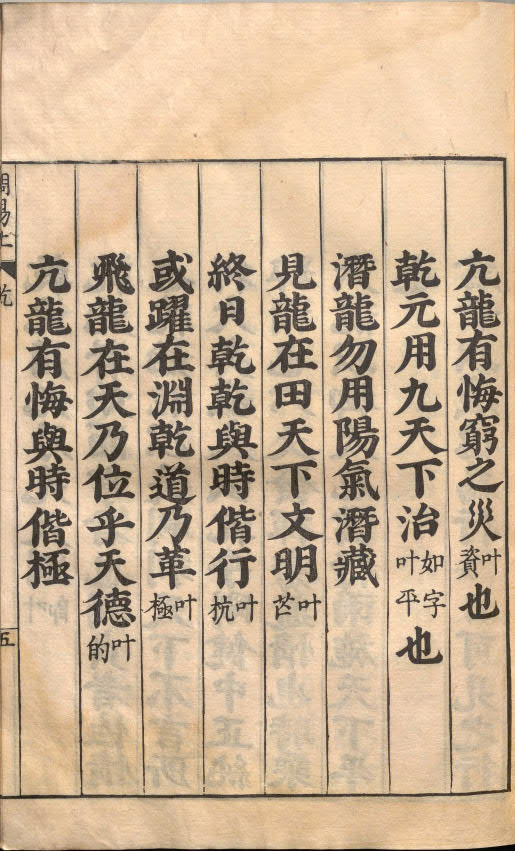 亢龍有悔窮之災叶資也
乾元用九天下治如字叶平也
潛龍勿用陽氣潛藏
見龍在田天下文明叶芒
終日乾乾與時偕行叶杭
或躍在淵乾道乃革叶極
飛龍在天乃位乎天德叶的
亢龍有悔與時偕極
周易上 乾 五